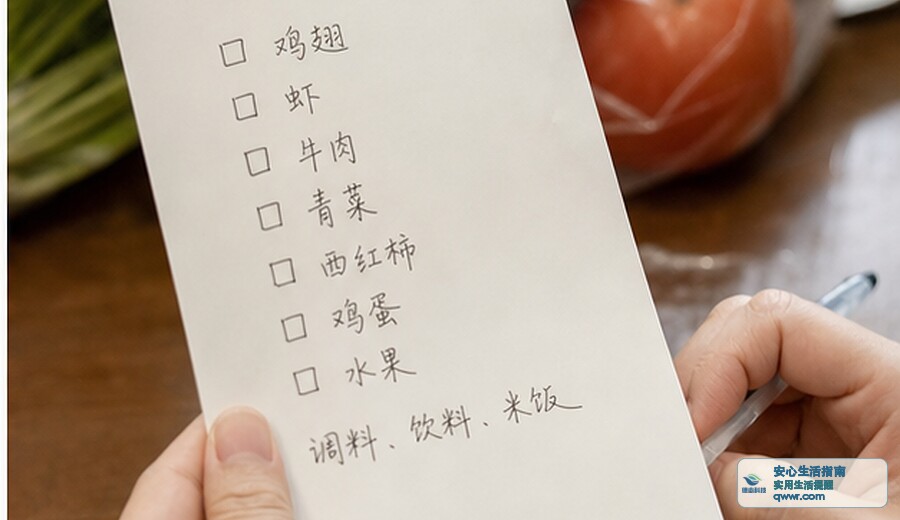 □ 鸡翅
□ 虾
□ 牛肉
□ 青菜
□ 西红柿
□ 鸡蛋
□ 水果
调料、饮料、米饭
安心生活指南
实用生活提醒
qwwr.com